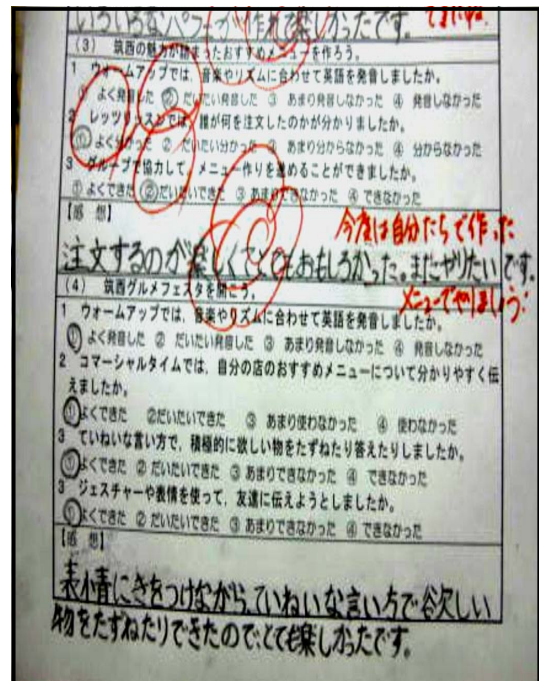 いろいろなパフェーが作れて楽しかったです。
(3) 筑西の魅力が詰まったおすすめメニューを作ろう。
1 ウォームアップでは、音楽やリズムに合わせて英語を発音しましたか。
① よく発音した ② だいたい発音した ③ あまり発音しなかった ④ 発音しなかった
2 レッツリッスンでは、誰が何を注文したのかが分かりましたか。
① よく分かった ② だいたい分かった ③ あまり分からなかった ④ 分からなかった
3 グループで協力して、メニュー作りを進めることができましたか。
① よくできた ② だいたいできた ③ あまりできなかった ④ できなかった
【感 想】
今度は自分たちで作った
注文するのが楽しくてとてもおもしろかった。まだやりたいです。
メニューでやりましょう!
(4) 筑西グルメフェスタを開こう。
1 ウォームアップでは、音楽やリズムに合わせて英語を発音しましたか。
① よく発音した ② だいたい発音した ③ あまり発音しなかった ④ 発音しなかった
2 コマーシャルタイムでは、自分の店のおすすめメニューについて分かりやすく伝
えましたか。
① よくできた ②だいたいできた ③ あまり使わなかった ④ 使わなかった
3 ていねいな言い方で、積極的に欲しい物をたずねたり答えたりしましたか。
① よくできた ② だいたいできた ③ あまりできなかった ④ できなかった
3 ジェスチャーや表情を使って、友達に伝えようとしましたか。
① よくできた ② だいたいできた ③ あまりできなかった ④ できなかった
【感 想】
表情にきをつけながら、ていねいな言い方で欲しい
物をたずねたりできたので、とても楽しかったです。